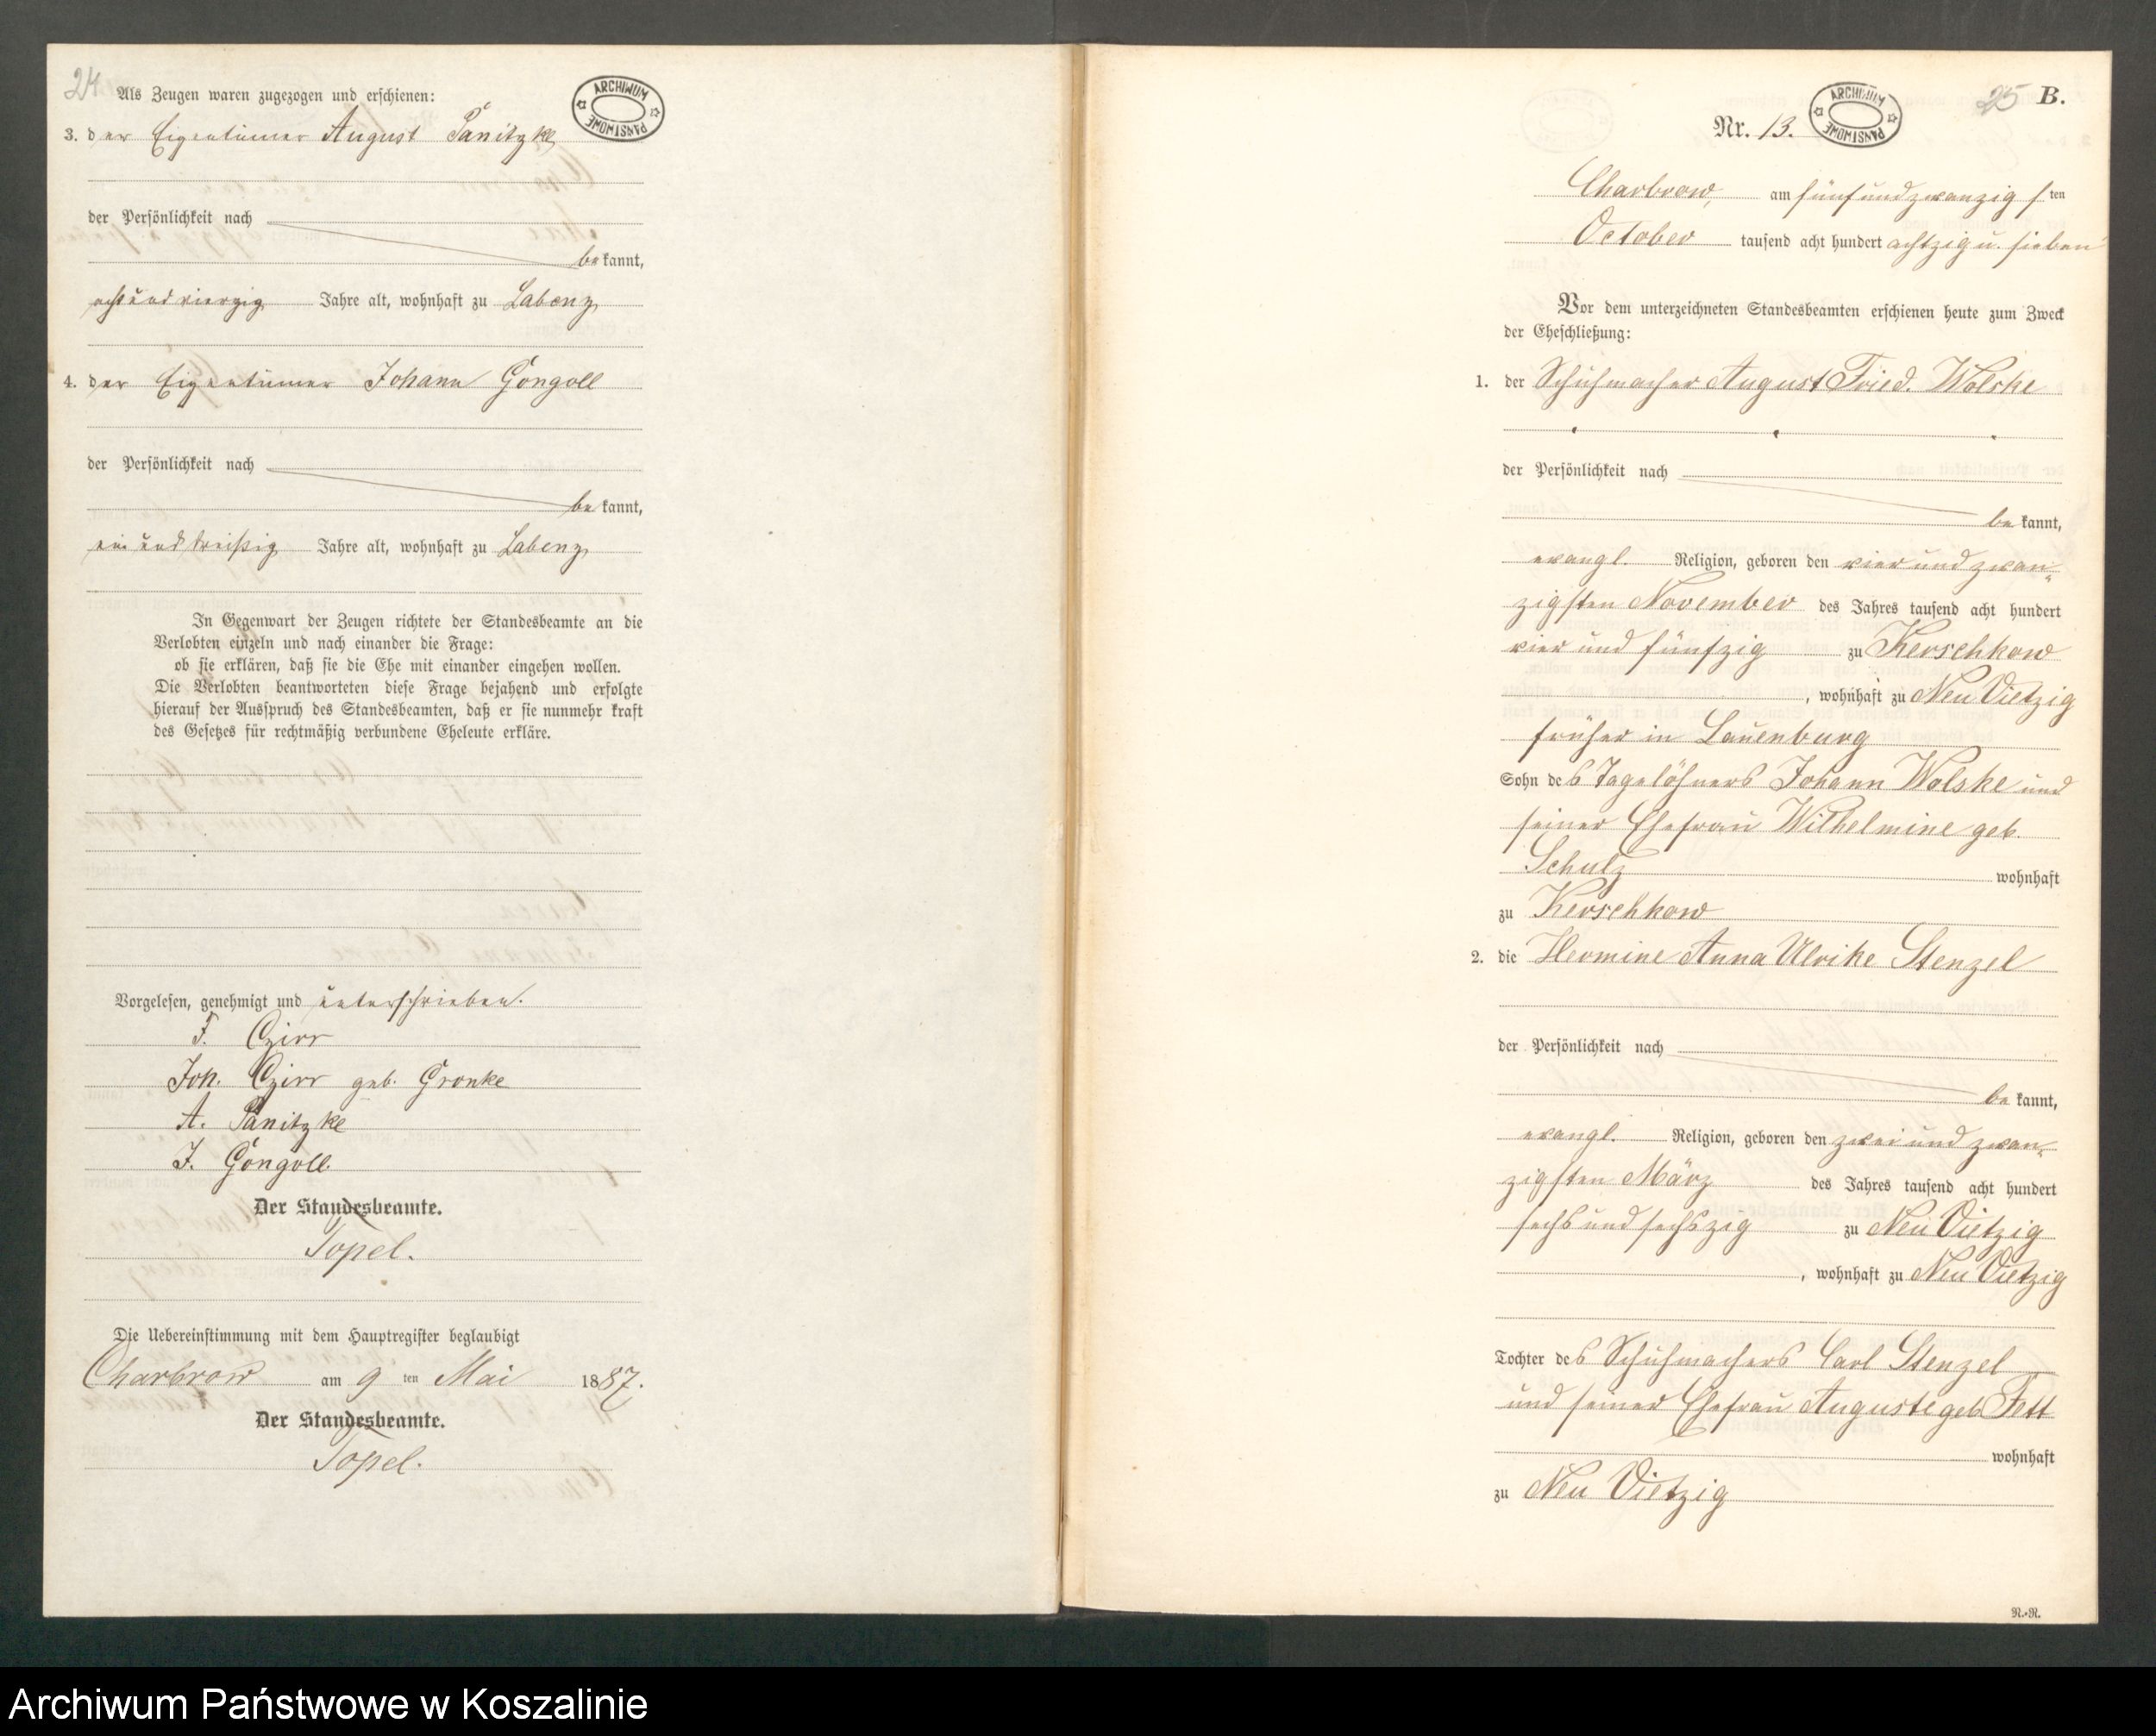 24
Als Zeugen waren zugezogen und erschienen:
ARCHIWUM PAŃSTWOWE
3. der Eigentümer August Panitzke
der Persönlichkeit nach
bekannt,
acht und vierzig Jahre alt, wohnhaft zu Labenz
4. der Eigentümer Johann Gongoll
der Persönlichkeit nach
bekannt,
ein und dreißig Jahre alt, wohnhaft zu Labenz
In Gegenwart der Zeugen richtete der Standesbeamte an die
Verlobten einzeln und nach einander die Frage:
ob sie erklären, daß sie die Ehe mit einander eingehen wollen.
Die Verlobten beantworteten diese Frage bejahend und erfolgte
hierauf der Ausspruch des Standesbeamten, daß er sie nunmehr kraft
des Gesetzes für rechtmäßig verbundene Eheleute erkläre.
Vorgelesen, genehmigt und unterschrieben.
F. Czirr
Joh. Czirr geb. Gronke
A. Panitzke
J. Gongoll.
Der Standesbeamte.
Topel.
Die Uebereinstimmung mit dem Hauptregister beglaubigt
Charbrow am 9 ten Mai 1887.
Der Standesbeamte.
Topel.
25 B.
Nr. 13.
ARCHIWUM PAŃSTWOWE
Charbrow, am fünfundzwanzigsten
October tausend acht hundert achtzig u. sieben
Vor dem unterzeichneten Standesbeamten erschienen heute zum Zweck
der Eheschließung:
1. der Schuhmacher August Fried. Wolske
der Persönlichkeit nach
bekannt,
evangl. Religion, geboren den vier und zwan„
zigsten November des Jahres tausend acht hundert
vier und fünfzig zu Kerschkow
, wohnhaft zu Neu Vietzig
früher in Lauenburg
Sohn des Tagelöhners Johann Wolske und
seiner Ehefrau Wilhelmine geb.
Schulz wohnhaft
zu Kerschkow
2. die Hermine Anna Ulrike Stenzel
der Persönlichkeit nach
bekannt,
evangl. Religion, geboren den zwei und zwan„
zigsten März des Jahres tausend acht hundert
sechs und sechszig zu Neu Vietzig
, wohnhaft zu Neu Vietzig
Tochter des Schuhmachers Carl Stenzel
und seiner Ehefrau Auguste geb Fett
wohnhaft
zu Neu Vietzig
R.-R.
Archiwum Państwowe w Koszalinie